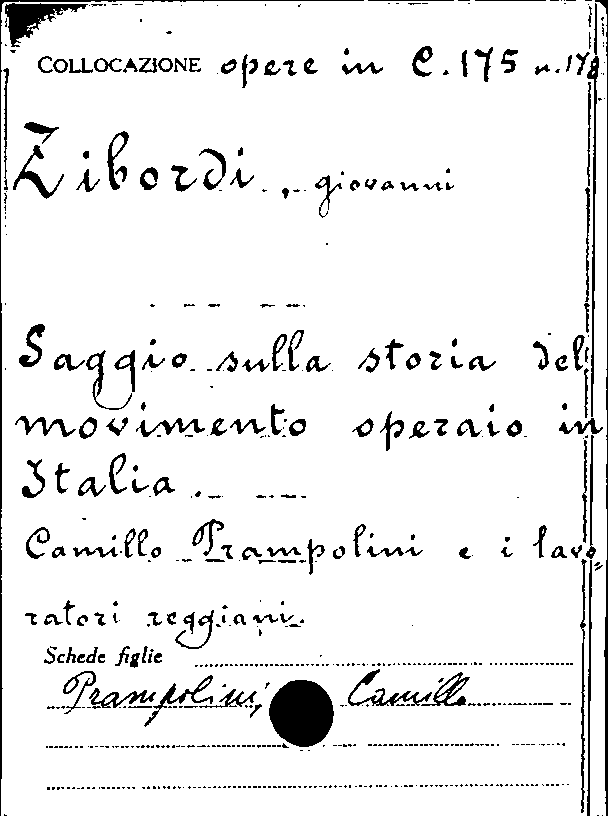 COLLOCAZIONE opere in C.175 n.178
Zibordi, giovanni
Saggio sulla storia del
movimento operaio in
Italia.
Camillo Prampolini e i lavo=
ratori reggiani.
Schede figlie
Prampolini, Camillo